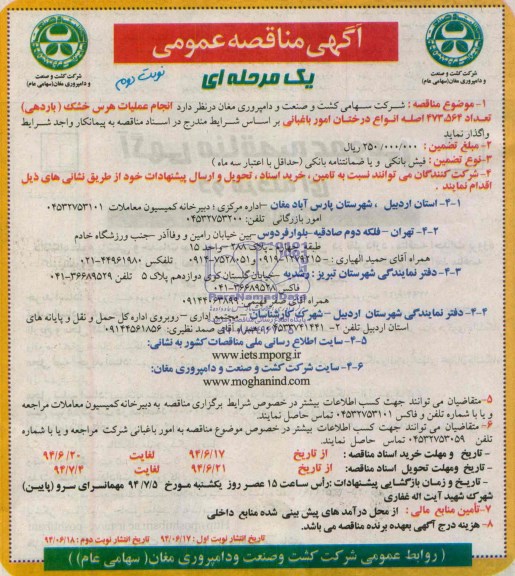 آگهی مناقصه عمومی
یک مرحله ای
نوبت دوم
شرکت کشت و صنعت
و دامپروری مغان (سهامی عام)
شرکت کشت و صنعت
و دامپروری مغان (سهامی عام)
۱- موضوع مناقصه : شرکت سهامی کشت و صنعت و دامپروری مغان درنظر دارد انجام عملیات هرس خشک (باردهی)
تعداد ۴۷۳,۵۶۴ اصله انواع درختان امور باغبانی بر اساس شرایط مندرج در اسناد مناقصه به پیمانکار واجد شرایط
واگذار نماید
۲- مبلغ تضمین : ۲۵۰/۰۰۰/۰۰۰ ریال
۳- نوع تضمین : فیش بانکی و یا ضمانتنامه بانکی (حداقل با اعتبار سه ماه )
۴- شرکت کنندگان می توانند نسبت به تامین ، خرید اسناد، تحویل و ارسال پیشنهادات خود از طریق نشانی های ذیل
اقدام نمایند .
۱-۴- استان اردبیل ، شهرستان پارس آباد مغان –اداره مرکزی : دبیرخانه کمیسیون معاملات ۰۴۵۳۲۷۵۳۱۰۱
امور بازرگانی تلفن: ۰۴۵۳۲۷۵۳۲۰۰
۲-۴- تهران – فلکه دوم صادقیه –بلوارفردوس –بین خیابان رامین و وفاآذر –جنب ورزشگاه خادم
پلاک ۲۸۸- واحد ۱۵
همراه آقای حمید الهیاری : تلفکس ۴۴۹۶۱۹۸۰-۰۲۱
۳-۴- دفتر نمایندگی شهرستان تبریز : رشدیه –خیابان گلستان کوی دوازدهم پلاک ۵ تلفن ۳۶۶۸۹۵۲۹-۰۴۱
فاکس ۳۶۶۸۹۵۴۸-۰۴۱
همراه آقای
۴-۴- دفتر نمایندگی شهرستان اردبیل – شهرک کارشناسان – مجتمع اداری – روبروی اداره کل حمل و نقل و پایانه های
استان اردبیل تلفن ۲- ۰۴۵۳۳۷۴۱۴۴۱ همراه آقای صمد نظیری: ۰۹۱۴۴۵۶۱۸۵۶
۵-۴- سایت اطلاع رسانی ملی مناقصات کشور به نشانی:
www.iets.mporg.ir
۶-۴- سایت شرکت کشت و صنعت و دامپروری مغان:
www.moghanind.com
۵- متقاضیان می توانند جهت کسب اطلاعات بیشتر در خصوص شرایط برگزاری مناقصه به دبیرخانه کمیسیون معاملات مراجعه
و یا با شماره تلفن و فاکس ۰۴۵۳۲۷۵۳۱۰۱ تماس حاصل نمایند.
۶- متقاضیان می توانند جهت کسب اطلاعات بیشتر در خصوص موضوع مناقصه به امور باغبانی شرکت مراجعه و یا با شماره
تلفن ۰۴۵۳۲۷۵۳۰۵۹ تماس حاصل نمایند.
- تاریخ و مهلت خرید اسناد مناقصه : از تاریخ ۹۴/۶/۱۷ لغایت ۹۴/۶/۲۰
- تاریخ ومهلت تحویل اسناد مناقصه: از تاریخ ۹۴/۶/۲۱ لغایت ۹۴/۷/۴
- تاریخ و زمان بازگشایی پیشنهادات :رأس ساعت ۱۵ عصر روز یکشنبه مورخ ۹۴/۷/۵ مهمانسرای سرو (پایین)
شهرک شهید آیت اله غفاری
۷-تأمین منابع مالی : از محل درآمد های پیش بینی شده منابع داخلی
۸- هزینه درج آگهی بعهده برنده مناقصه می باشد.
تاریخ انتشار نوبت اول : ۹۴/۰۶/۱۷ تاریخ انتشار نوبت دوم : ۹۴/۰۶/۱۸
( روابط عمومی شرکت کشت وصنعت ودامپروری مغان( سهامی عام) )